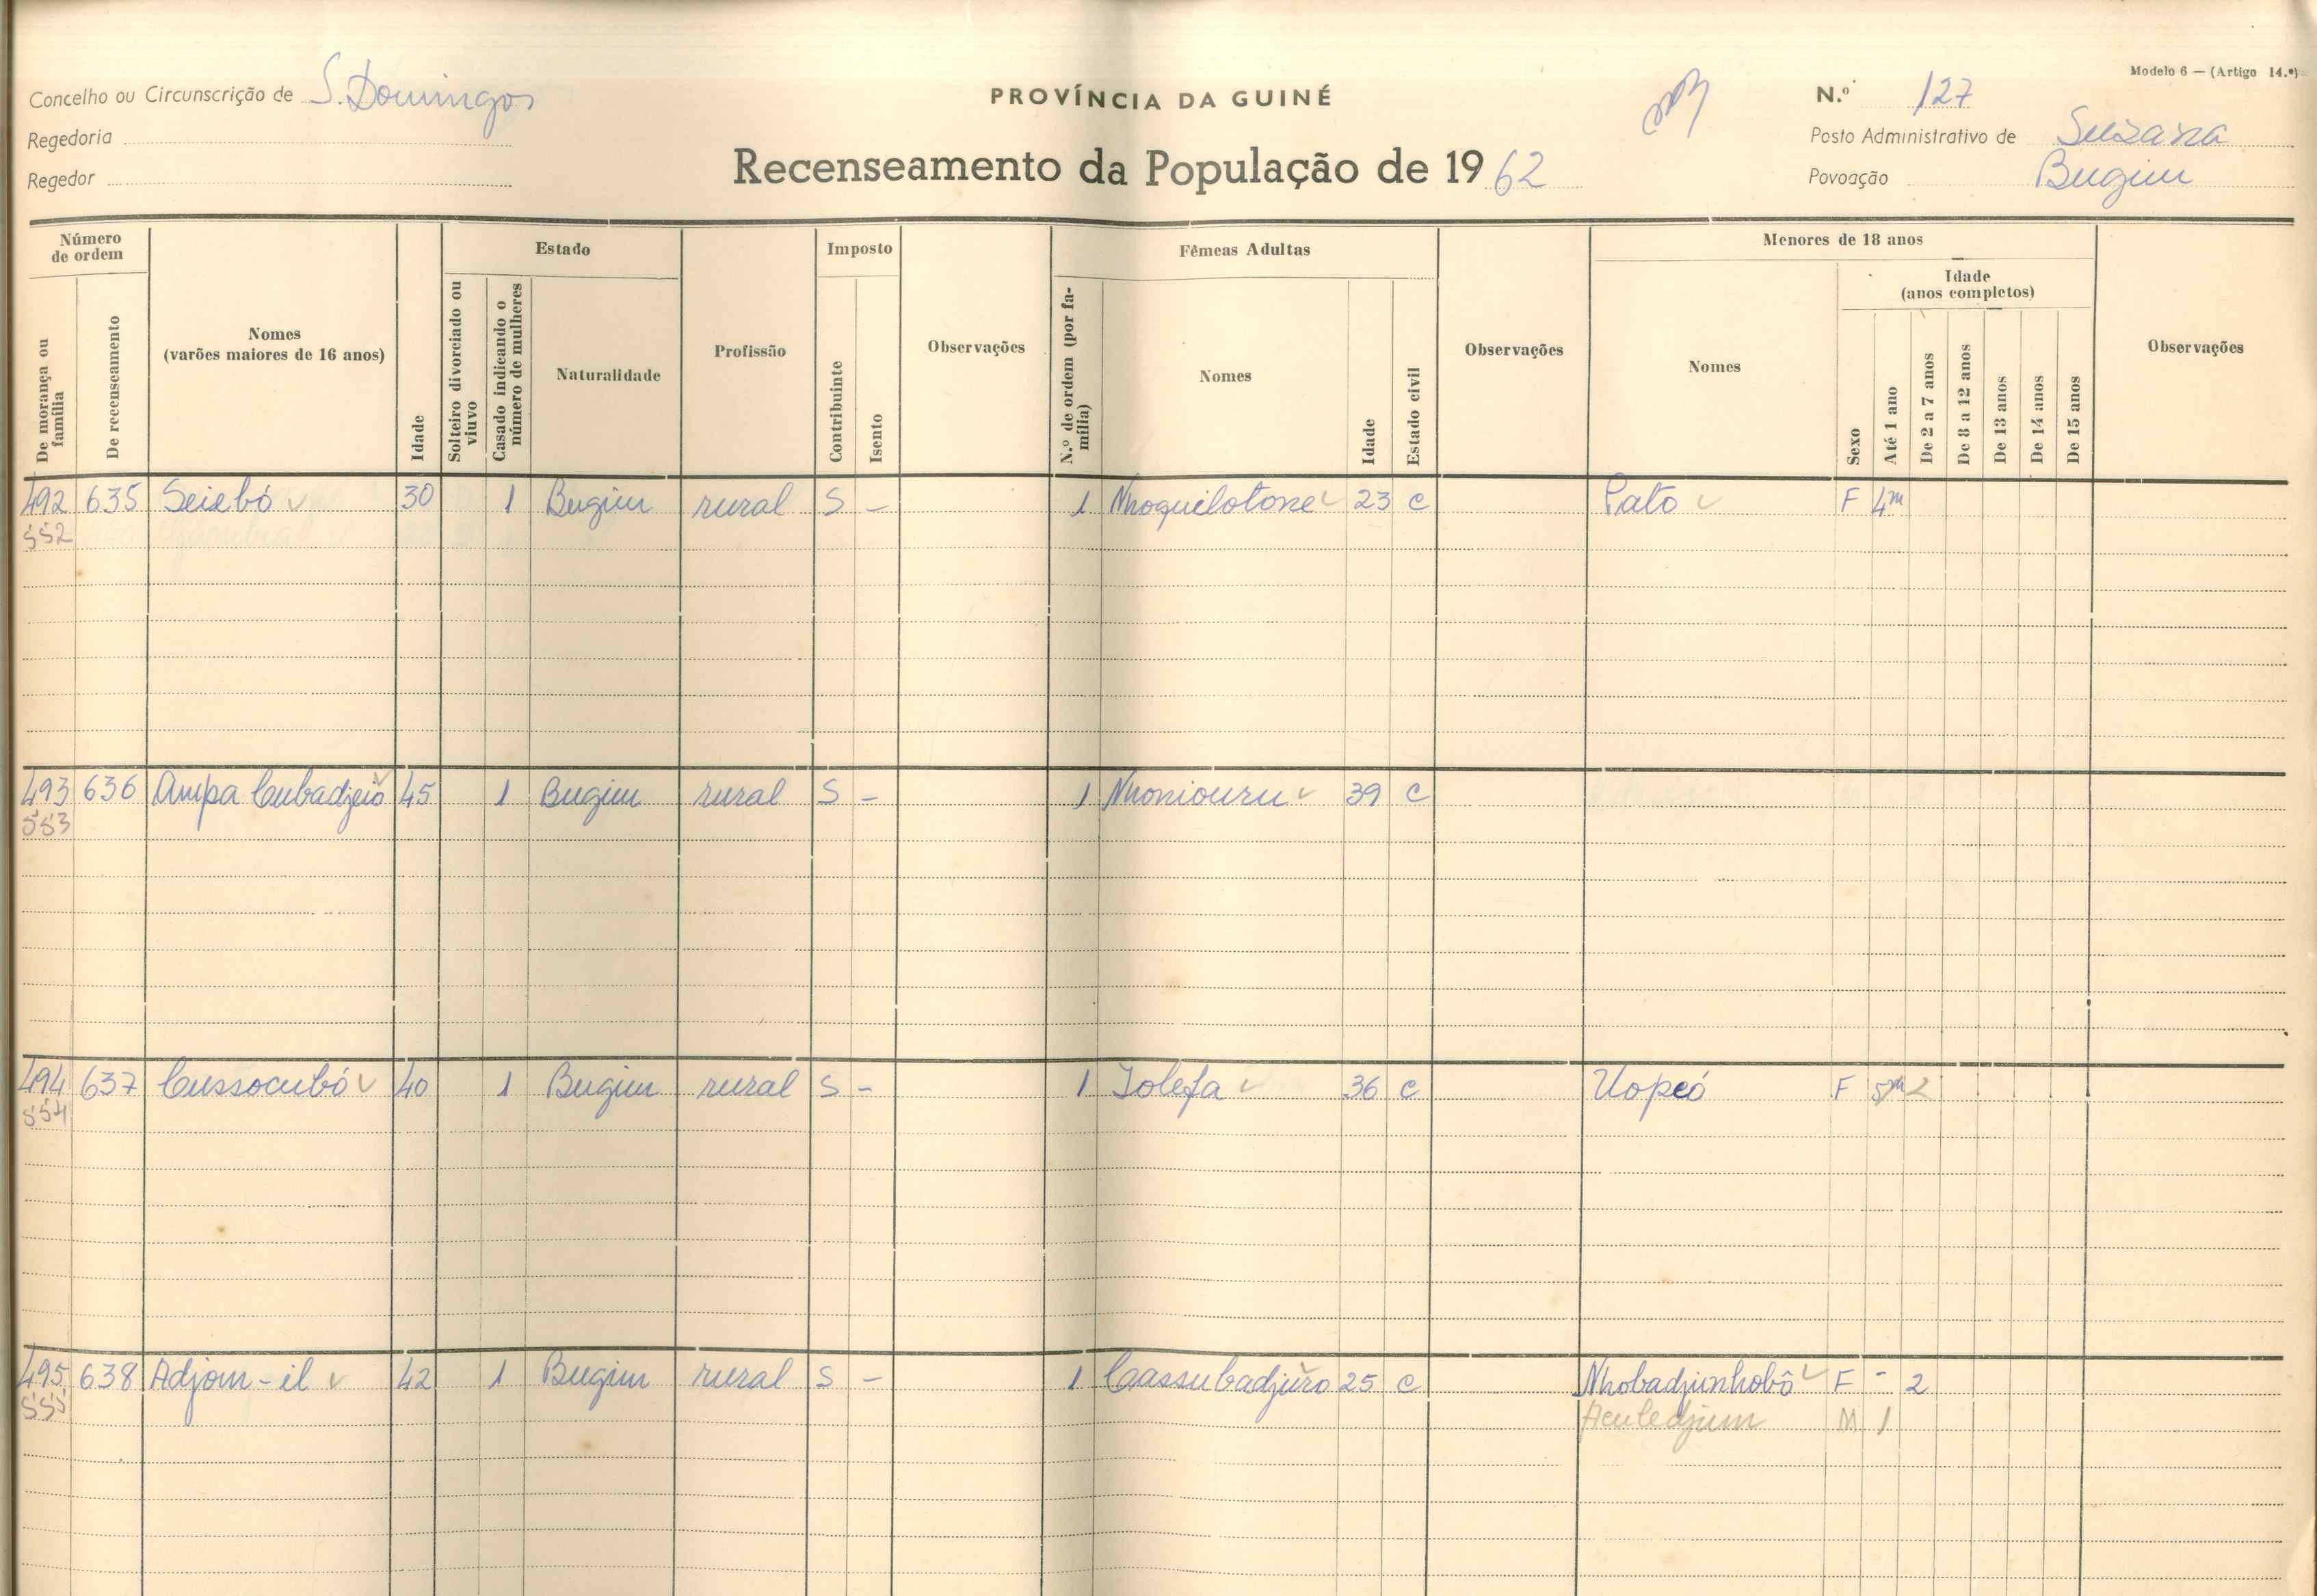 Modelo 6 — (Artigo 14.º)
Concelho ou Circunscrição de S. Domingos
PROVÍNCIA DA GUINÉ
N.º 127
Regedoria
Posto Administrativo de Suzana
Recenseamento da População de 1962
Regedor
Povoação Bugim
Número de ordem
Estado
Imposto
Fêmeas Adultas
Menores de 18 anos
Idade (anos completos)
De morança ou família
De recenseamento
Nomes (varões maiores de 16 anos)
Idade
Solteiro divorciado ou viuvo
Casado indicando o número de mulheres
Naturalidade
Profissão
Contribuinte
Isento
Observações
N.º de ordem (por família)
Nomes
Idade
Estado civil
Observações
Nomes
Sexo
Até 1 ano
De 2 a 7 anos
De 8 a 12 anos
De 13 anos
De 14 anos
De 15 anos
Observações
492 635 Seiebó 30 1 Bugim rural S - 1 Nhoquilotone 23 C Pato F 4m
552
493 636 Ampa Cubadjeió 45 1 Bugim rural S - 1 Nhoniouru 39 C
553
494 637 Cussocubó 40 1 Bugim rural S - 1 Jolefa 36 C Uopeó F 5m 2
554
495 638 Adjom-il 42 1 Bugim rural S - 1 Caassubadjuro 25 C Nhobadjinhobô F - 2
555 Aculedjum M 1